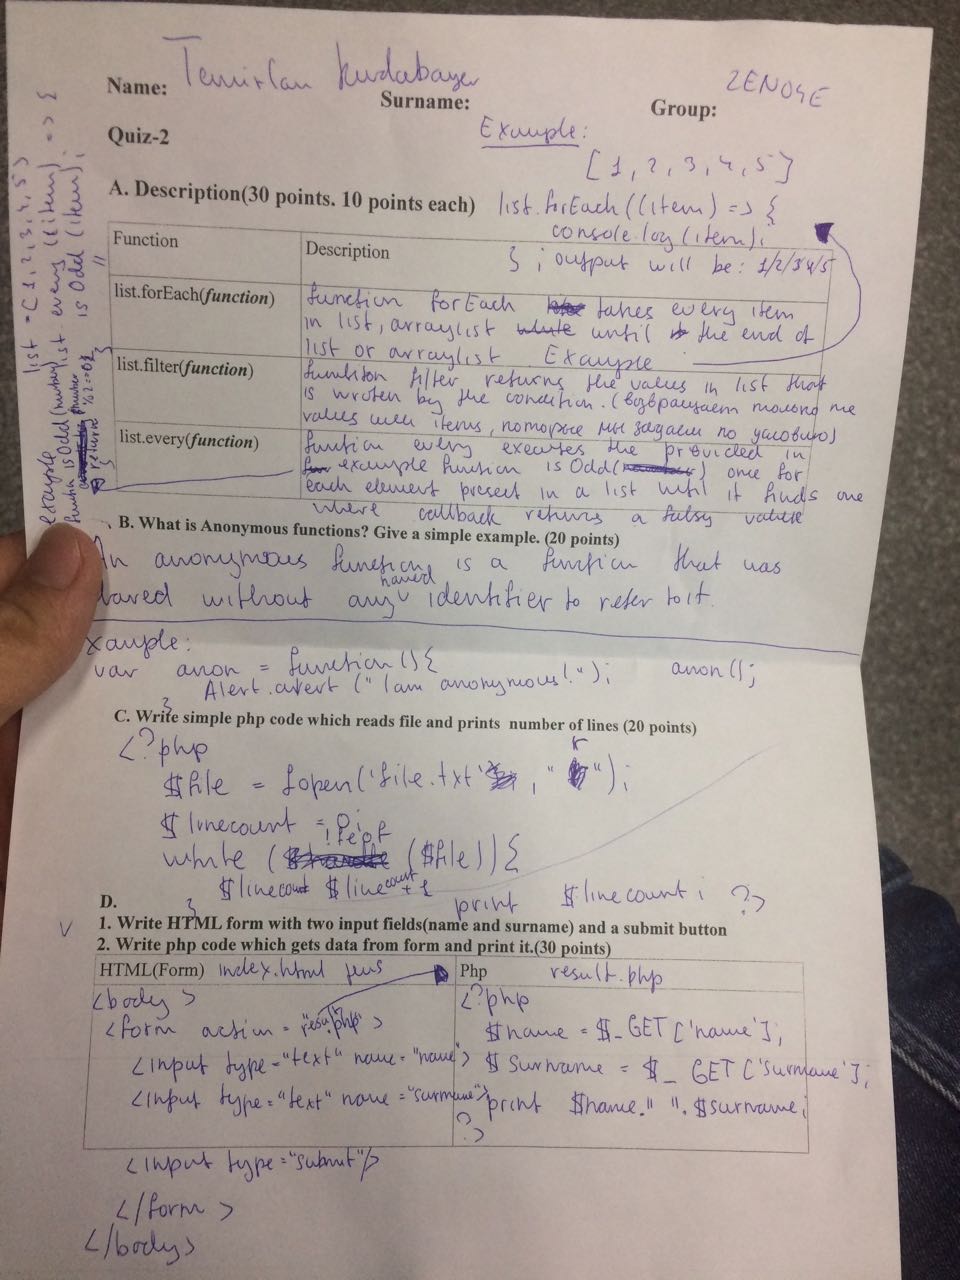 Name: Temirlan Kudabayev
Surname:
Group: 2EN04E
Quiz-2
Example:
[1, 2, 3, 4, 5]
A. Description(30 points. 10 points each)
list.forEach((item) => {
console.log(item);
} ; output will be: 1/2/3/4/5
Function
Description
list.forEach(function)
function forEach takes every item
in list, arraylist until the end of
list or arraylist Example
list.filter(function)
function filter returns the values in list that
is wroten by the condition. (возвращает только те
values или items, которые мы задаем по условию)
list.every(function)
function every executes the provided in
example function isOdd( ) once for
each element present in a list until it finds one
where callback returns a falsy value
example list = [1, 2, 3, 4, 5]
list.every((item) => {
isOdd(item);
}
function isOdd(number
return number %2==0;
}
B. What is Anonymous functions? Give a simple example. (20 points)
An anonymous function is a function that was
without any named identifier to refer to it.
xample:
var anon = function(){
Alert.alert("I am anonymous!."); anon();
}
C. Write simple php code which reads file and prints number of lines (20 points)
<?php
$file = fopen('file.txt', "r");
$linecount = 0;
while (!feof($file)){
$linecount $linecount +1
} print $linecount; ?>
D.
V 1. Write HTML form with two input fields(name and surname) and a submit button
2. Write php code which gets data from form and print it.(30 points)
HTML(Form) index.html
Php result.php
<body>
<form action = "resu.php">
<input type="text" name="name">
<input type="text" name="surname">
<input type="submit"/>
</form>
</body>
<?php
$name = $_GET['name'];
$surname = $_GET['surname'];
print $name." ".$surname;
?>